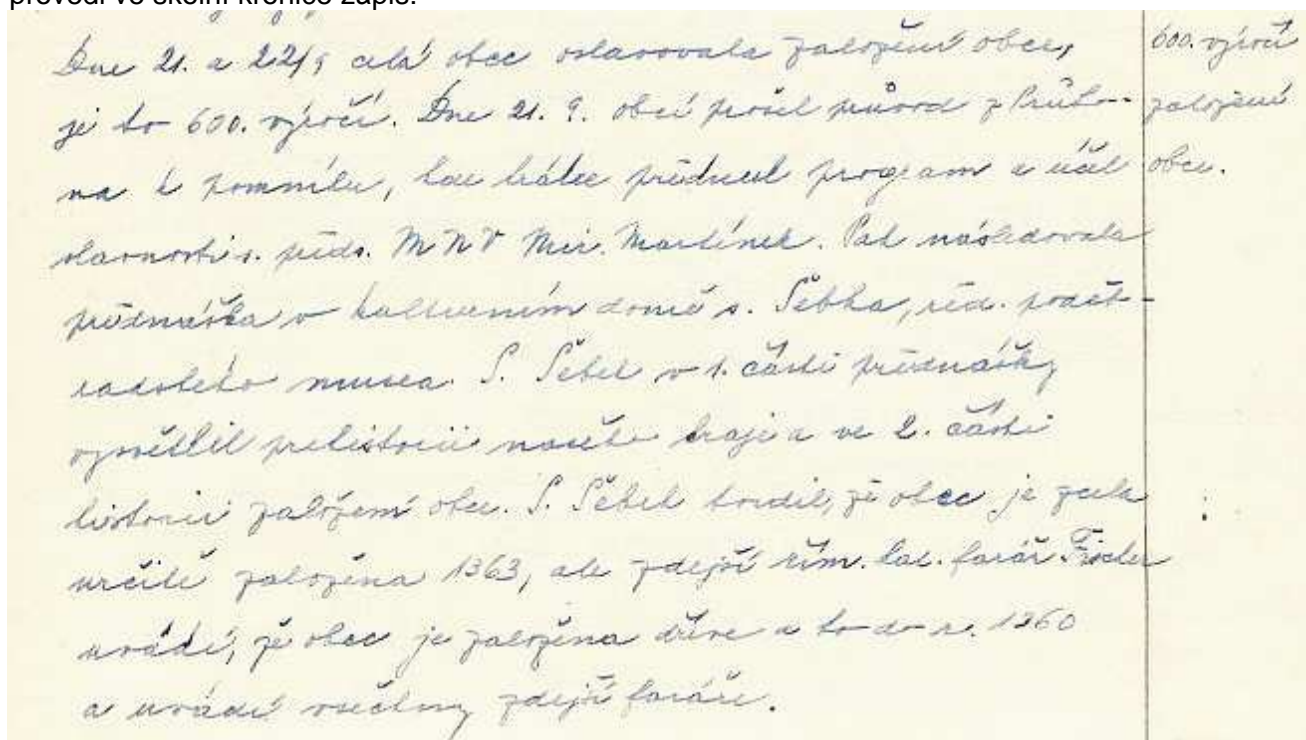 provedl ve školní kronice zápis:
Dne 21. a 22/9 celá obec oslavovala založení obce,
je to 600. výročí. Dne 21. 9. obcí prošel průvod z Průho-
na k pomníku, kde krátce přednesl program a účel
slavnosti s. předs. MNV Mir. Martínek. Pak následovala
přednáška v kulturním domě s. Šebka, řed. poděb-
radského musea. S. Šebek v 1. části přednášky
vysvětlil prehistorii našeho kraje a ve 2. části
historii založení obce. S. Šebek tvrdil, že obec je zcela
určitě založena 1363, ale zdejší řím. kat. farář Fischer
uvádí, že obec je založena dříve a to do r. 1260
a uvádí všechny zdejší faráře.
600. výročí
založení
obce.